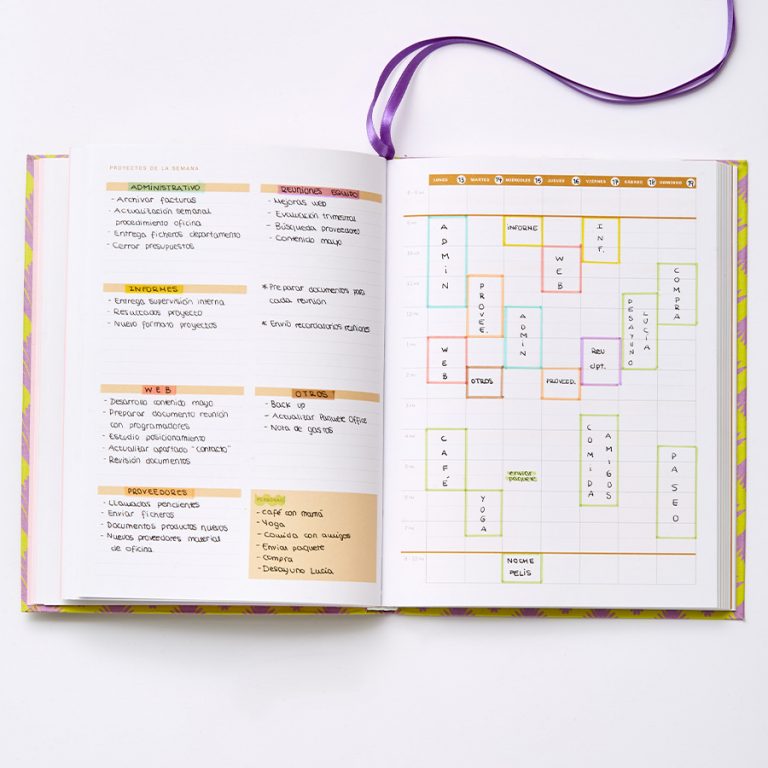 PROYECTOS DE LA SEMANA
ADMINISTRATIVO
- Archivar facturas
- Actualización semanal
procedimiento oficina
- Entrega ficheros departamento
- Cerrar presupuestos
REUNIONES EQUIPO
- Mejoras web
- Evaluación trimestral
- Búsqueda proveedores
- Contenido mayo
INFORMES
- Entrega supervisión interna
- Resultados proyecto
- Nuevo formato proyectos
* Preparar documentos para
cada reunión
* Envío recordatorios reuniones
WEB
- Desarrollo contenido mayo
- Preparar documento reunión
con programadores
- Estudio posicionamiento
- Actualizar apartado "contacto"
- Revisión documentos
OTROS
- Back up
- Actualizar Paquete Office
- Nota de gastos
PROVEEDORES
- Llamadas pendientes
- Enviar ficheros
- Documentos productos nuevos
- Nuevos proveedores material
de oficina
PERSONAL
- Café con mamá
- Yoga
- Comida con amigos
- Enviar paquete
- Compra
- Desayuno Lucía
LUNES 13 MARTES 14 MIÉRCOLES 15 JUEVES 16 VIERNES 17 SÁBADO DOMINGO
ADMIN
INFORME
INF.
WEB
COMPRA
PROVEE.
DESAYUNO
LUCÍA
ADMIN
WEB
REU
CIPT.
OTROS
PROVEED.
CAFÉ
COMIDA
AMIGOS
PASEO
enviar
paquete
YOGA
NOCHE
PELIS